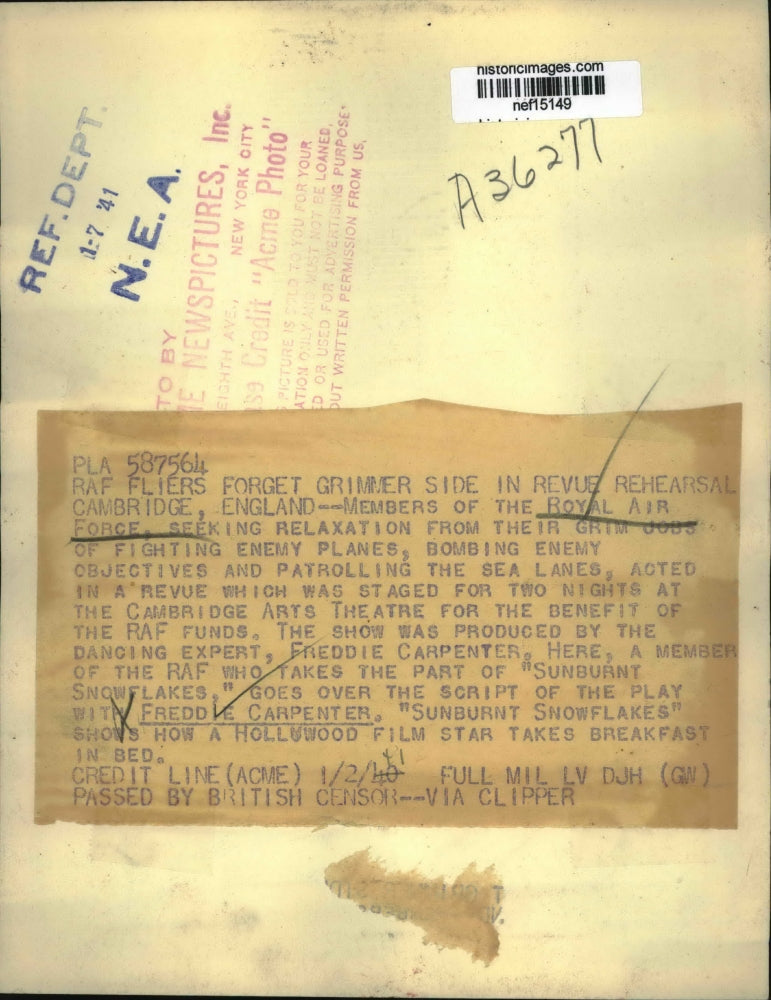 historicimages.com
nef15149
A36277
REF. DEPT.
1-7 '41
N. E. A.
TO BY
NEWSPICTURES, Inc.
EIGHTH AVE., NEW YORK CITY
Credit "Acme Photo"
PICTURE IS SOLD TO YOU FOR YOUR
ONLY AND MUST NOT BE LOANED,
OR USED FOR ADVERTISING PURPOSE,
WRITTEN PERMISSION FROM US,
PLA 587564
RAF FLIERS FORGET GRIMMER SIDE IN REVUE REHEARSAL
CAMBRIDGE, ENGLAND--MEMBERS OF THE ROYAL AIR
FORCE, SEEKING RELAXATION FROM THEIR GRIM JOBS
OF FIGHTING ENEMY PLANES, BOMBING ENEMY
OBJECTIVES AND PATROLLING THE SEA LANES, ACTED
IN A REVUE WHICH WAS STAGED FOR TWO NIGHTS AT
THE CAMBRIDGE ARTS THEATRE FOR THE BENEFIT OF
THE RAF FUNDS. THE SHOW WAS PRODUCED BY THE
DANCING EXPERT, FREDDIE CARPENTER. HERE, A MEMBER
OF THE RAF WHO TAKES THE PART OF "SUNBURNT
SNOWFLAKES," GOES OVER THE SCRIPT OF THE PLAY
WITH FREDDIE CARPENTER. "SUNBURNT SNOWFLAKES"
SHOWS HOW A HOLLYWOOD FILM STAR TAKES BREAKFAST
IN BED.
CREDIT LINE (ACME) 1/2/41 FULL MIL LV DJH (GW)
PASSED BY BRITISH CENSOR--VIA CLIPPER